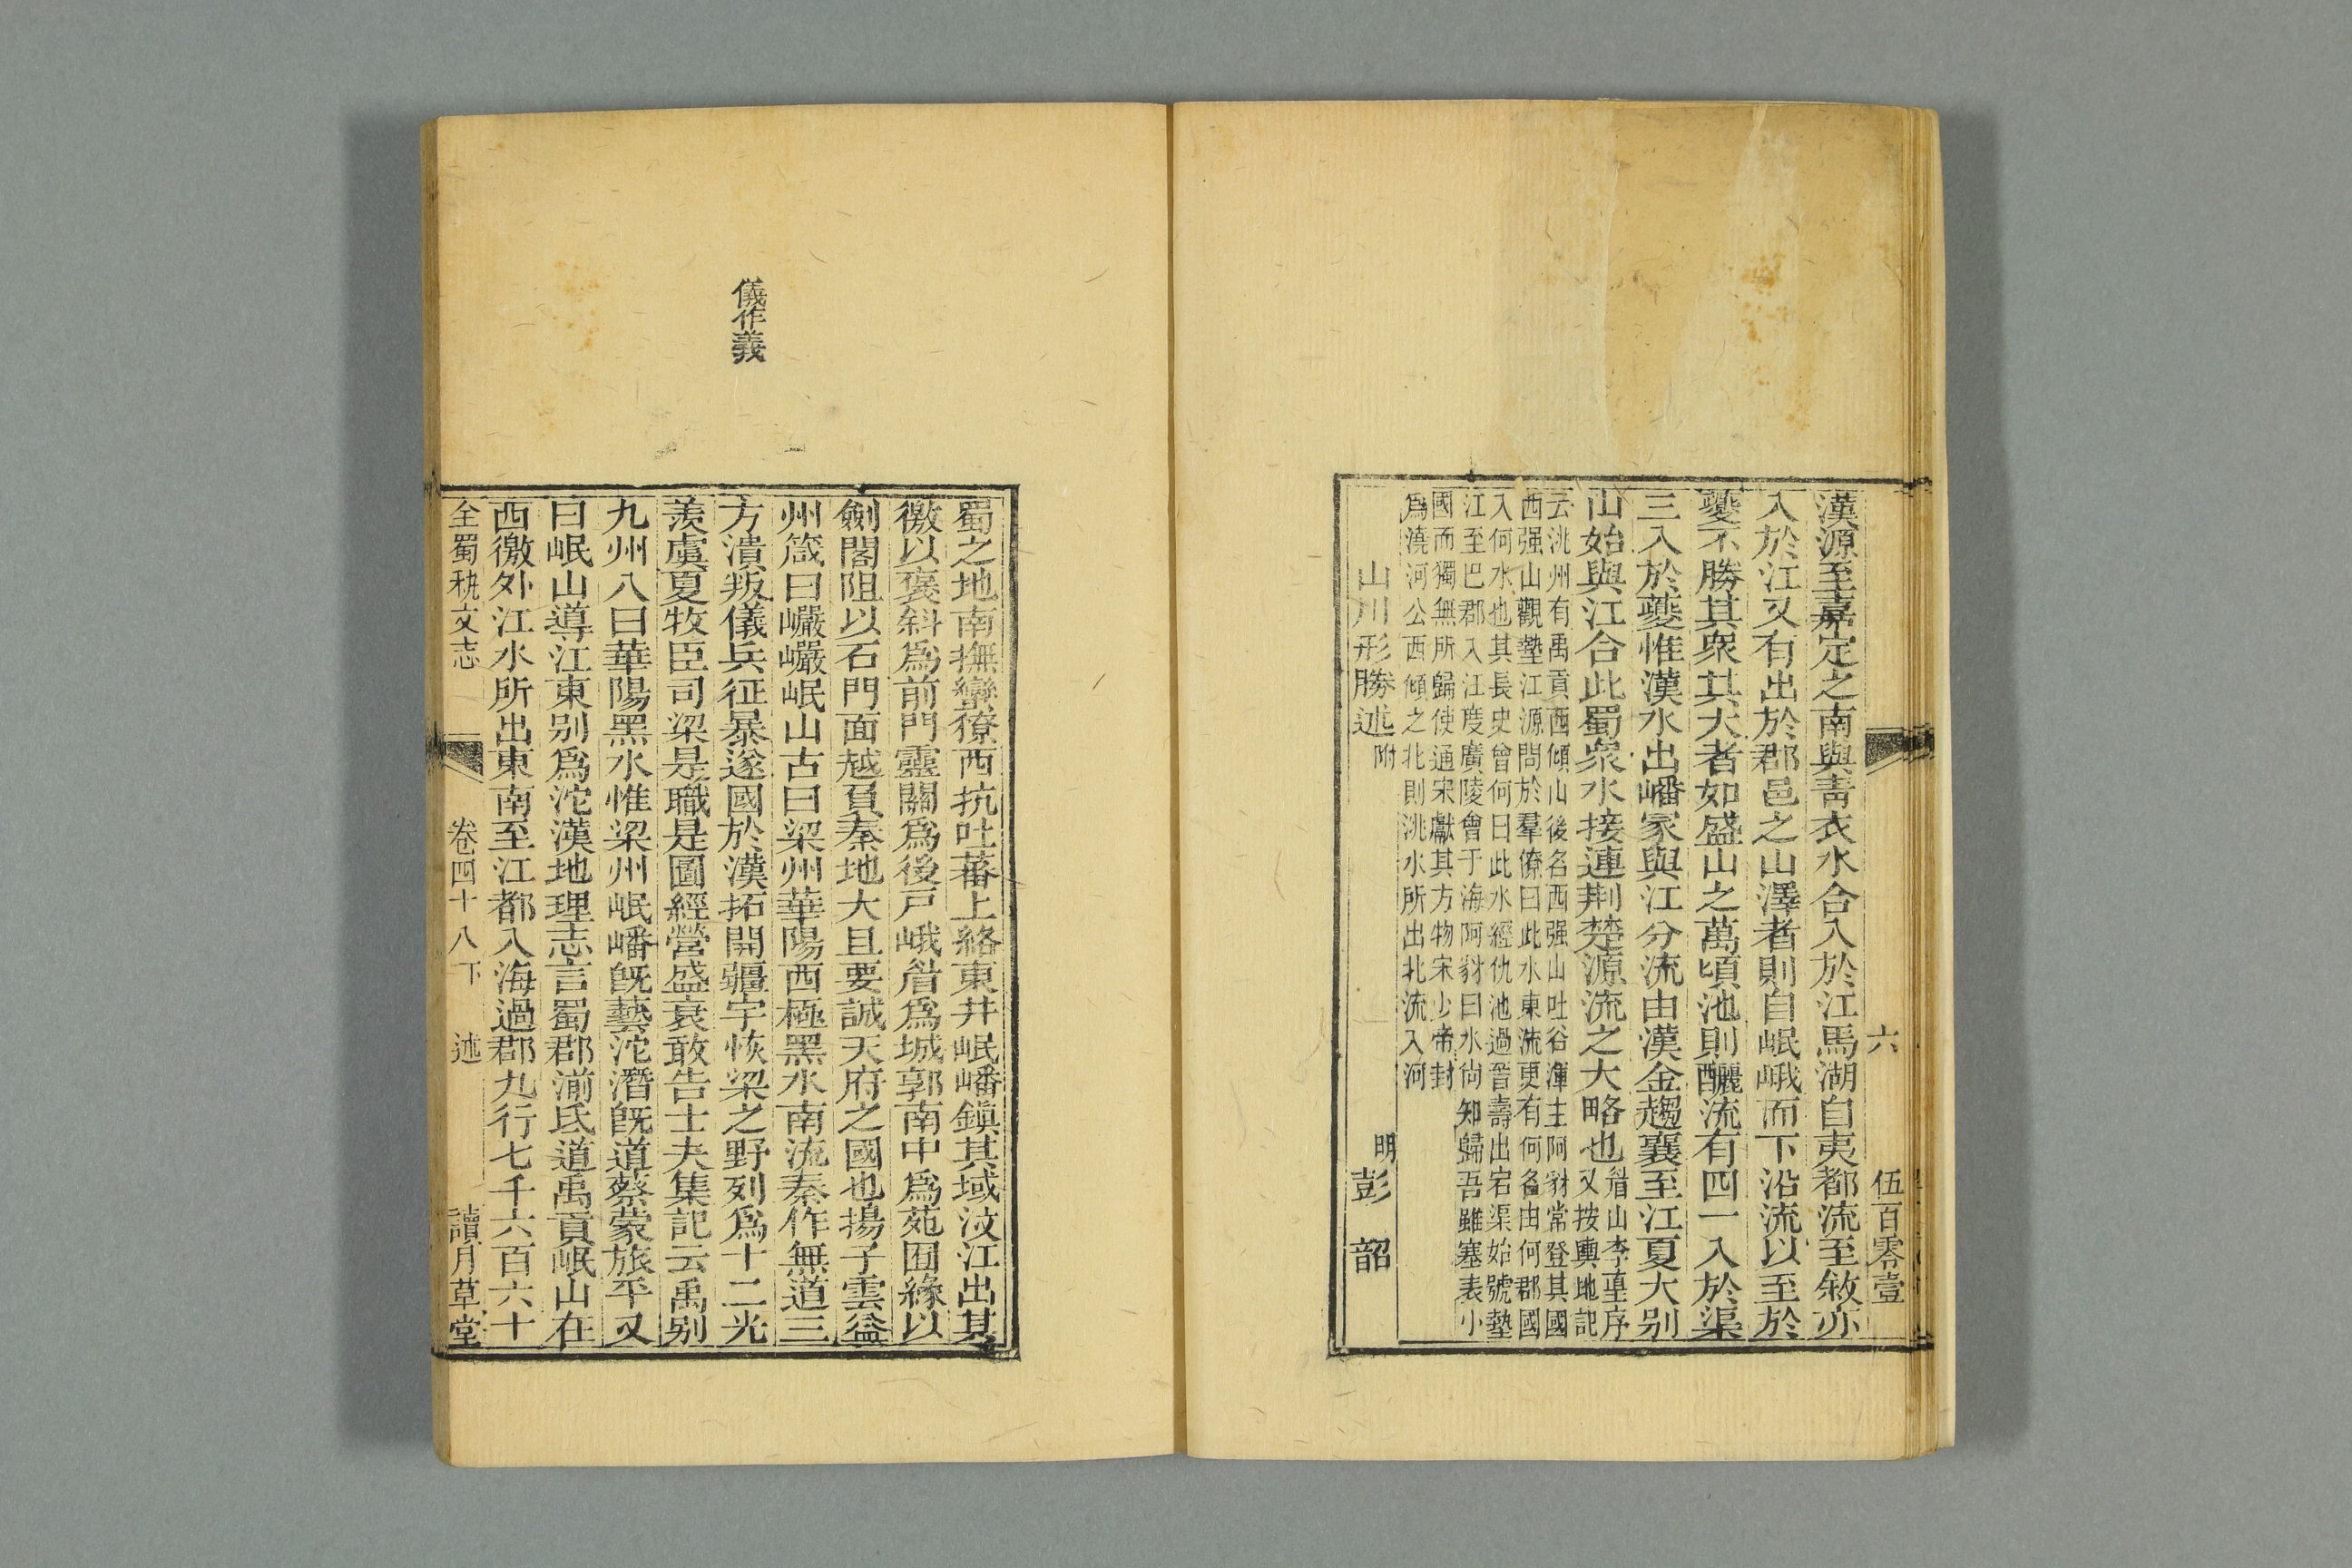 六　伍百零壹
漢源至嘉定之南與靑衣水合入於江馬湖自夷都流至敘亦
入於江又有出於郡邑之山澤者則自岷峨而下沿流以至於
夔不勝其衆其大者如盛山之萬頃池則釃流有四一入於渠
三入於夔惟漢水出嶓冢與江分流由漢金趨襄至江夏大别
山始與江合此蜀衆水接連荆楚源流之大略也
眉山李𡐨序
又按輿地記
云洮州有禹貢西傾山後名西强山吐谷渾主阿豺常登其國
西强山觀墊江源問於羣僚曰此水東流更有何名由何郡國
入何水也其長史曾何曰此水經仇池過晉壽出宕渠始號墊
江至巴郡入江度廣陵會于海阿豺曰水尙知歸吾雖塞表小
國而獨無所歸使通宋獻其方物宋少帝封
爲澆河公西傾之北則洮水所出北流入河
山川形勝述附　明彭韶
儀作義
蜀之地南撫蠻獠西抗吐蕃上絡東井岷嶓鎭其域汶江出其
徼以褒斜爲前門靈關爲後戸峨眉爲城郭南中爲苑囿緣以
劍閣阻以石門面越負秦地大且要誠天府之國也揚子雲益
州箴曰巖巖岷山古曰梁州華陽西極黑水南流秦作無道三
方潰叛儀兵征暴遂國於漢拓開疆宇恢梁之野列爲十二光
羨虞夏牧臣司梁是職是圖經營盛衰敢告士夫集記云禹别
九州八曰華陽黑水惟梁州岷嶓旣藝沱潛旣道蔡蒙旅平又
曰岷山導江東别爲沱漢地理志言蜀郡湔氐道禹貢岷山在
西徼外江水所出東南至江都入海過郡九行七千六百六十
全蜀秇文志　卷四十八下　述　讀月草堂